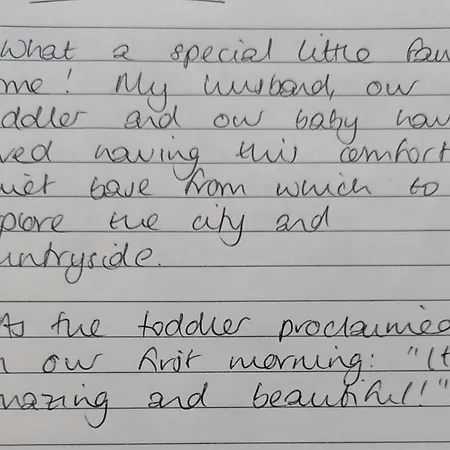 What a special little
me! My husband, our
ddler and our baby hav
ved having this comfort
uiet base from which to
plore the city and
untryside.
As the toddler proclaimed
n our first morning: "It
mazing and beautiful!"